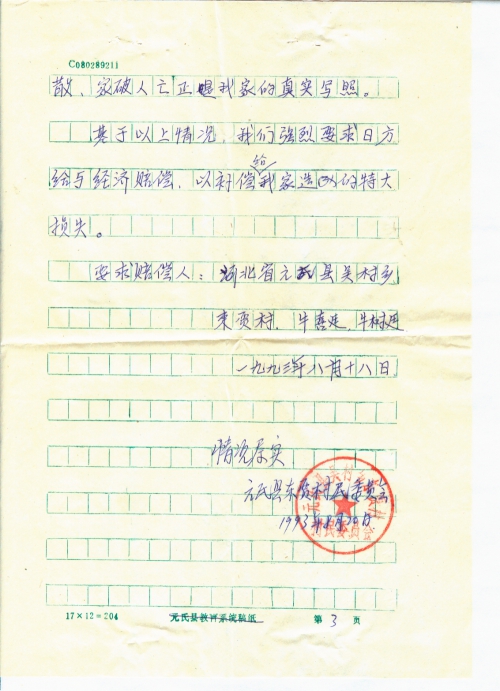 C080289211
散、家破人亡正是我家的真实写照。
基于以上情况，我们强烈要求日方
给与经济赔偿，以补偿给我家造成的特大
损失。
要求赔偿人：河北省元氏县吴村乡
东贾村，牛喜廷，牛树廷
一九九三年八月十八日
情况属实
元氏县东贾村村民委员会
1993年8月20日
村民委员会
17×12=204 元氏县教育系统稿纸 第3页